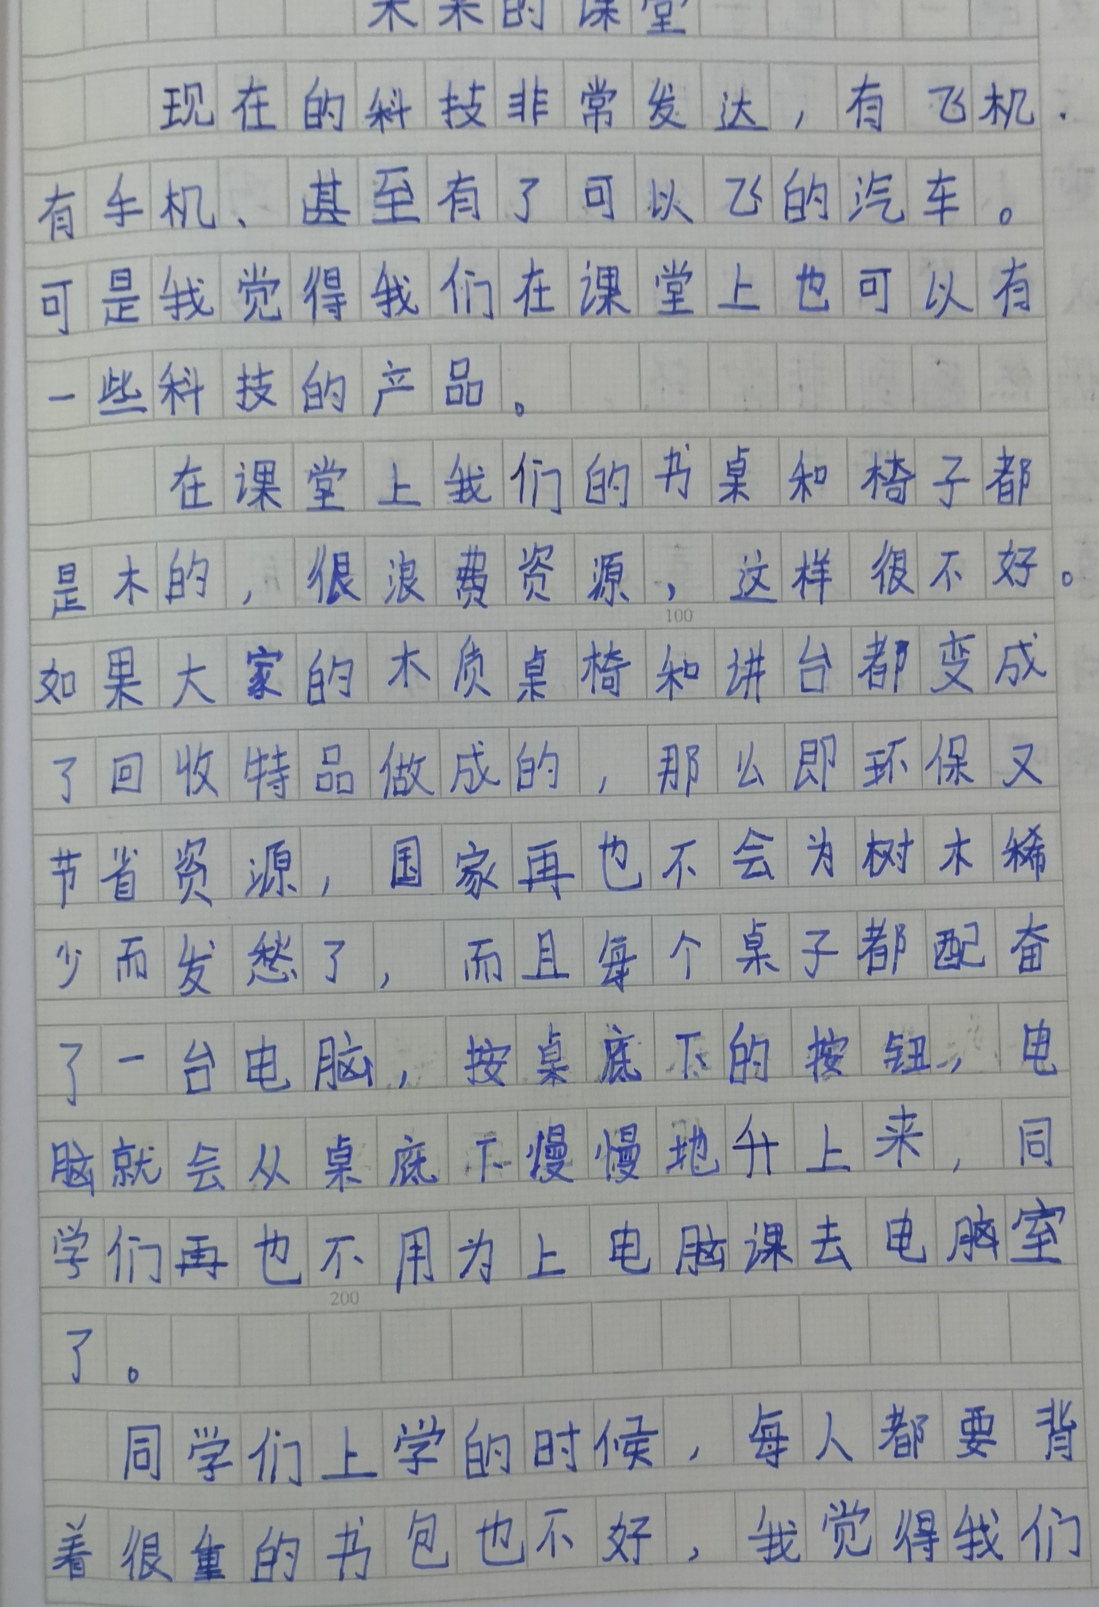 未来的课堂
现在的科技非常发达，有飞机.
有手机、甚至有了可以飞的汽车。
可是我觉得我们在课堂上也可以有
一些科技的产品。
在课堂上我们的书桌和椅子都
是木的，很浪费资源，这样很不好。
100
如果大家的木质桌椅和讲台都变成
了回收特品做成的，那么即环保又
节省资源，国家再也不会为树木稀
少而发愁了，而且每个桌子都配奋
了一台电脑，按桌底下的按钮，电
脑就会从桌底下慢慢地升上来，同
学们再也不用为上电脑课去电脑室
200
了。
同学们上学的时候，每人都要背
着很重的书包也不好，我觉得我们